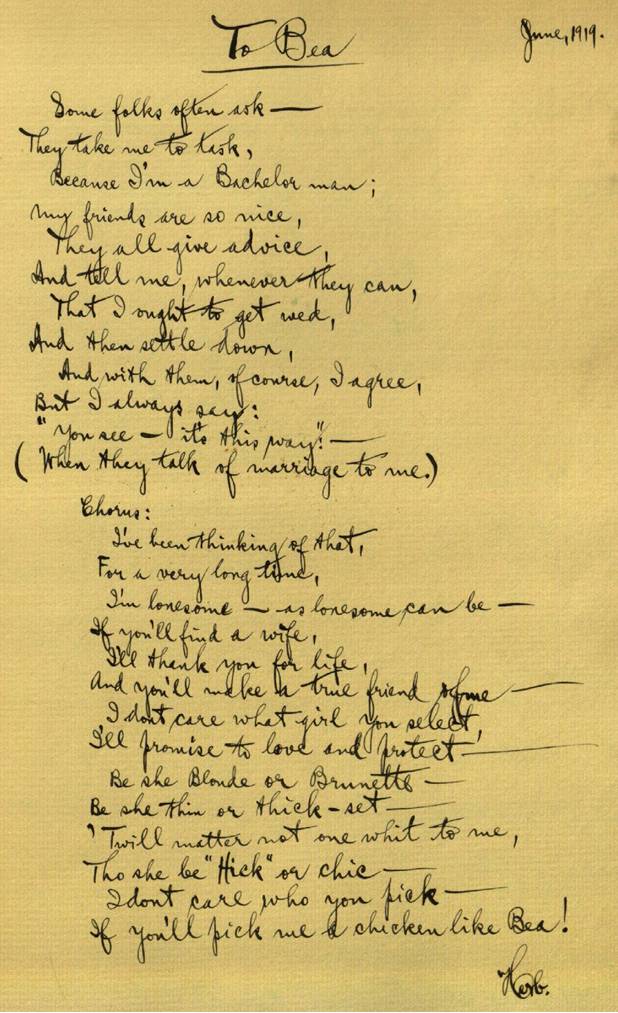 To Bea
June, 1919.
Some folks often ask —
They take me to task,
Because I'm a Bachelor man;
My friends are so nice,
They all give advice,
And tell me, whenever they can,
That I ought to get wed,
And then settle down,
And with them, of course, I agree,
But I always say:
"You see — it's this way": —
(When they talk of marriage to me.)
Chorus:
I've been thinking of that,
For a very long time,
I'm lonesome — as lonesome can be —
If you'll find a wife,
I'll thank you for life,
And you'll make a true friend of me —
I dont care what girl you select,
I'll promise to love and protect —
Be she Blonde or Brunette —
Be she thin or thick-set —
'Twill matter not one whit to me,
Tho she be "Hick" or chic —
I dont care who you pick —
If you'll pick me a chicken like Bea!
Herb.